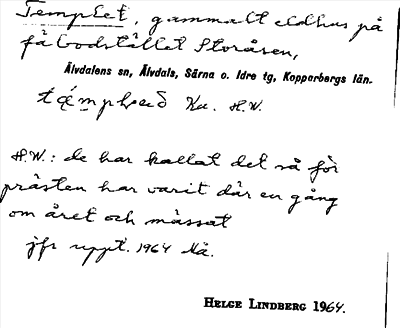 Templet, gammalt eldhus på
fäbodstället Storåsen,
Älvdalens sn, Älvdals, Särna o. Idre tg, Kopparbergs län.
Ku. H.W.
H.W.: de har kallat det så för
prästen har varit där en gång
om året och mässat
jfr uppt. 1964 Nä.
HELGE LINDBERG 1964.